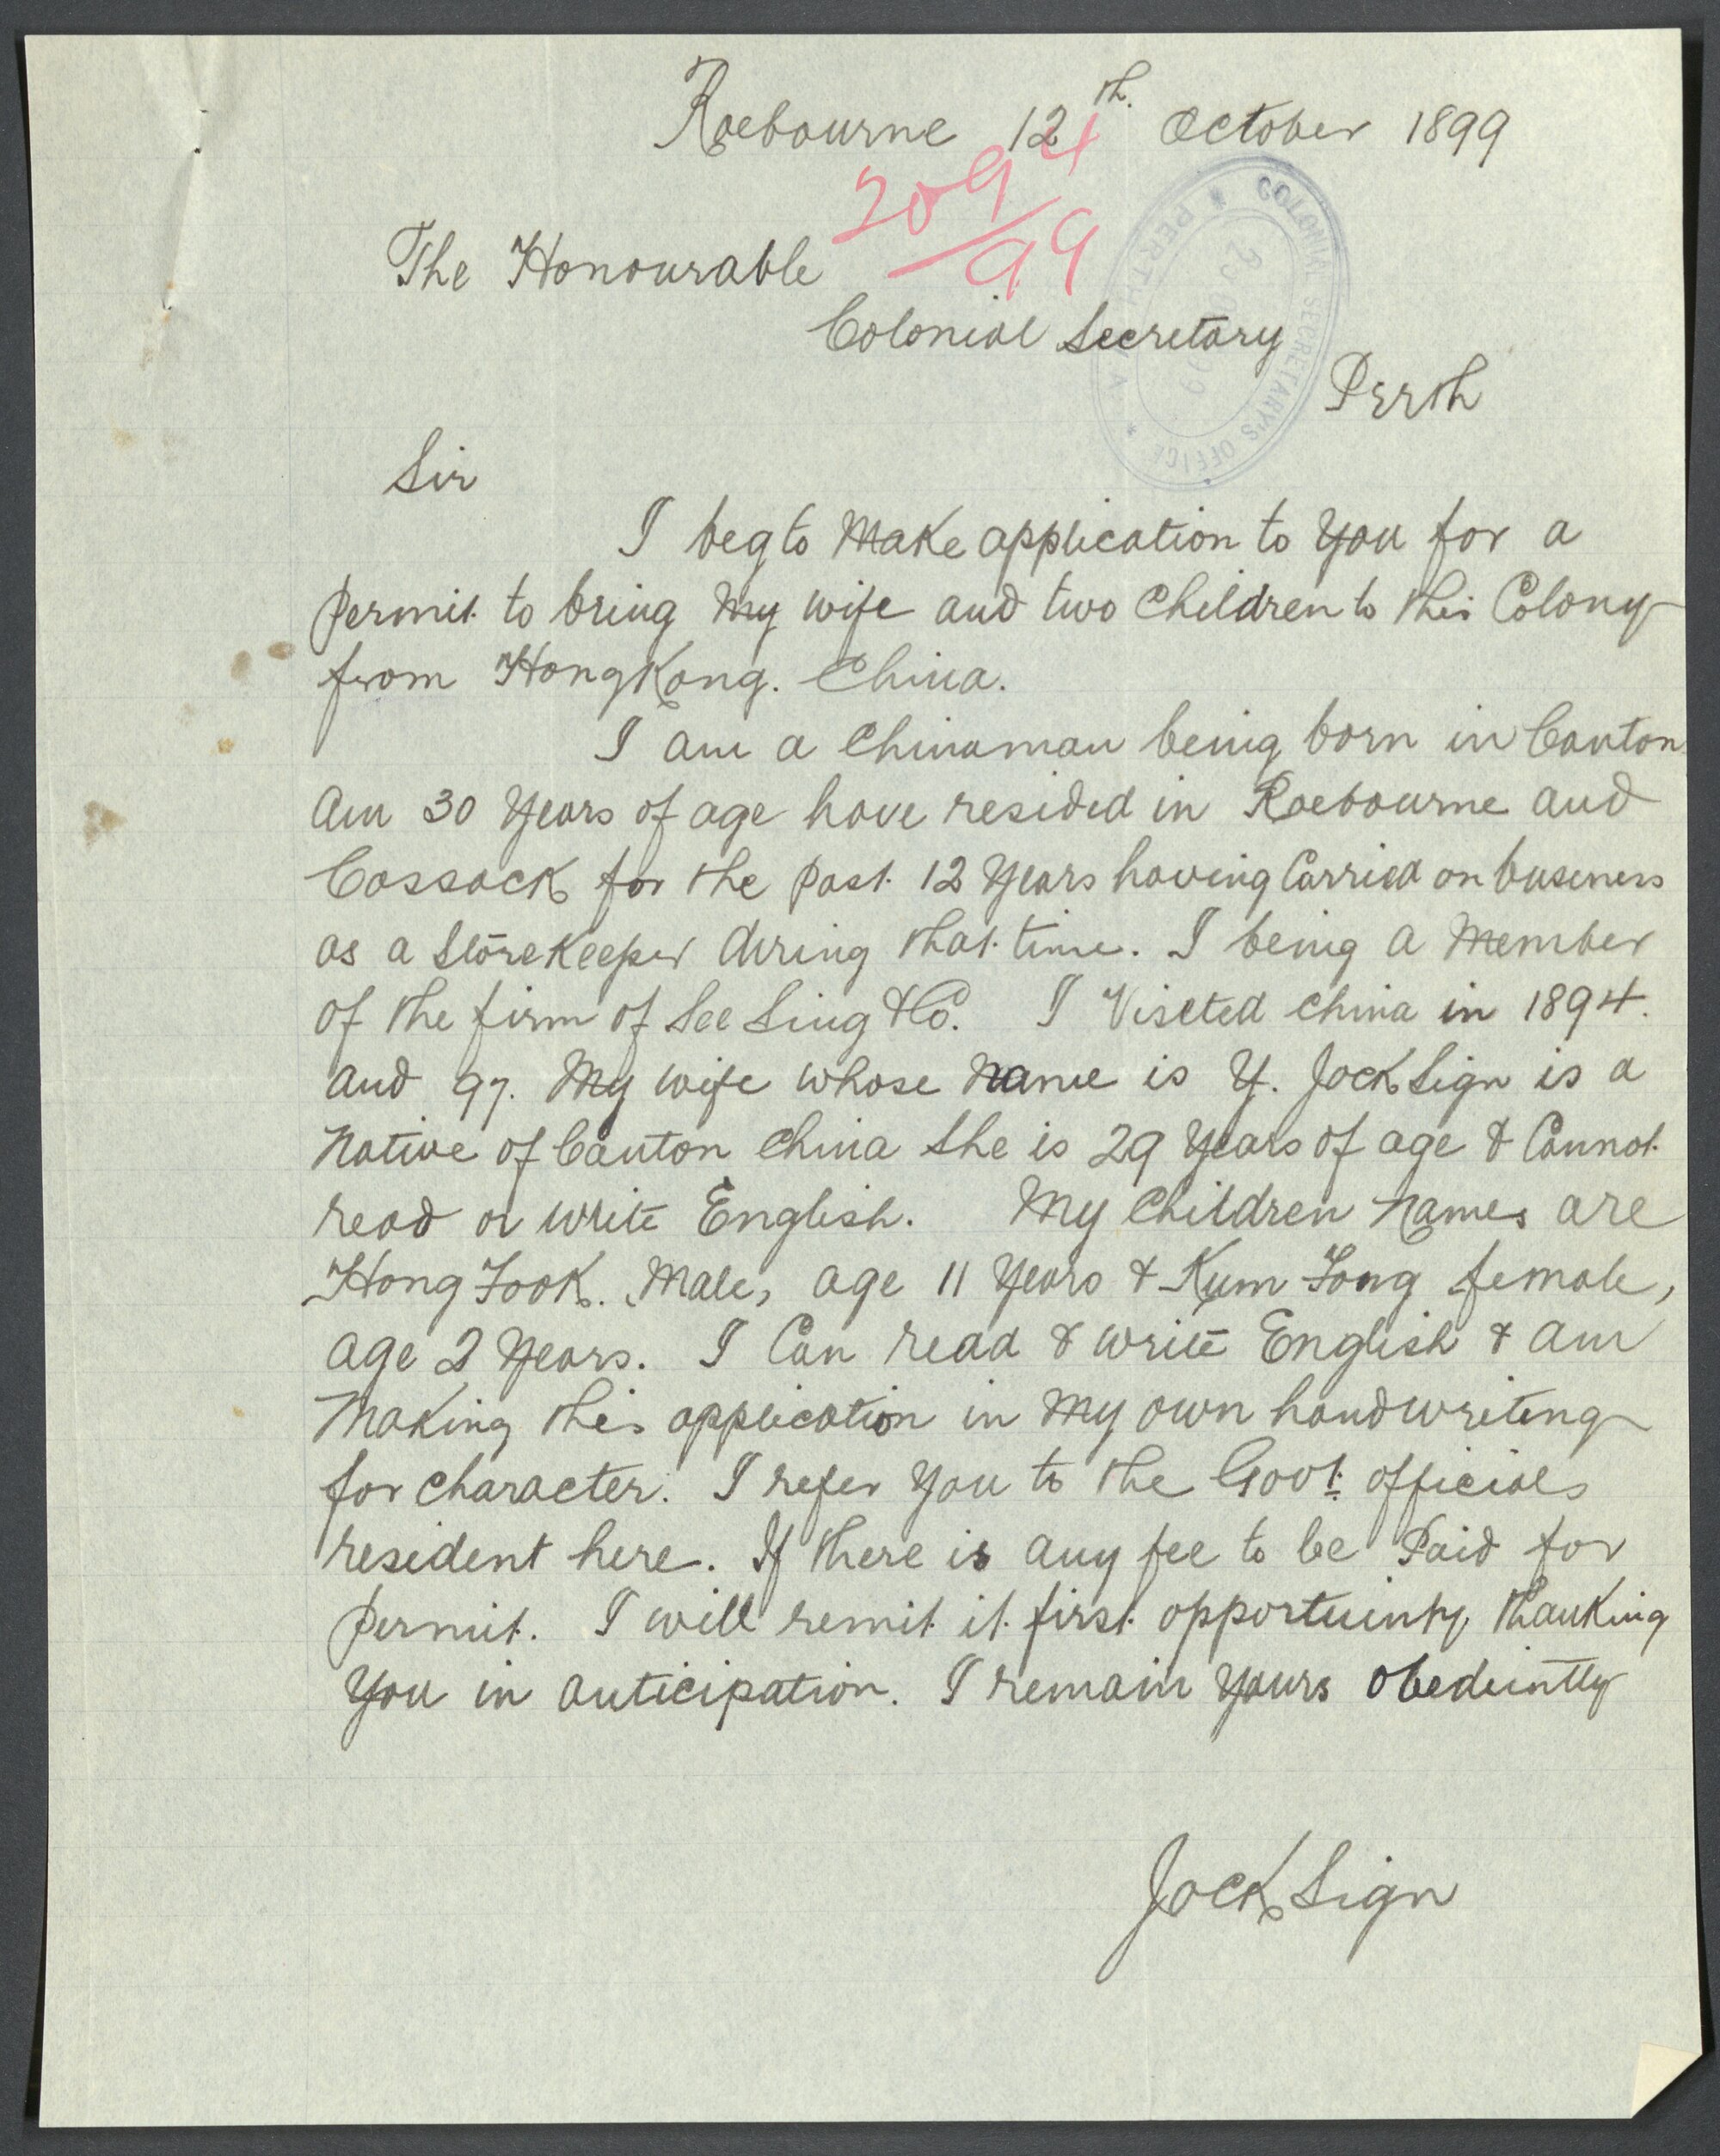 Roebourne 12th. October 1899
2094/99
The Honourable
Colonial Secretary
Perth
COLONIAL SECRETARY'S OFFICE * PERTH
Sir
I beg to Make application to you for a
permit to bring My wife and two Children to this Colony
from HongKong. China.
I am a Chinaman being born in Canton
am 30 Years of age have resided in Roebourne and
Cossack for the past 12 Years having Carried on buseness
as a StoreKeeper during that time. I being a Member
of the firm of See Sing & Co. I Viseted China in 1894.
and 97. My wife whose Name is Y. Jock Sign is a
Native of Canton China She is 29 Years of age & Cannot
read or write English. My Children Names are
Hong Fook. Male, age 11 Years & Kum Fong female,
age 2 Years. I Can read & write English & am
Making this application in My own handwriting
for Character. I refer You to the Govt. officials
resident here. If there is any fee to be Paid for
permit. I will remit it first opportuinty, thanking
You in anticipation. I remain Yours Obedeintly
Jock Sign